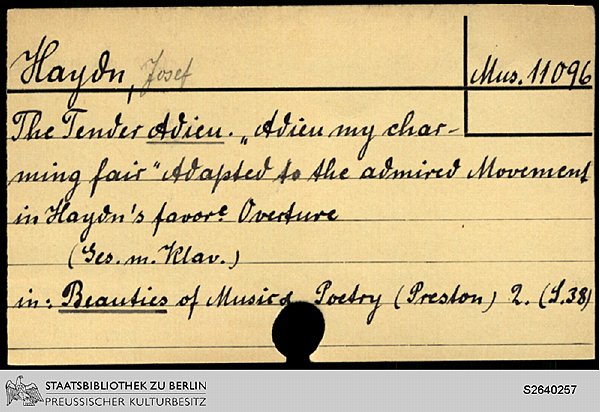 Haydn, Josef
Mus. 11096
The Tender Adieu. „Adieu my char-
ming fair" Adapted to the admired Movement
in Haydn's favore. Overture
(Ges. m. Klav.)
in: Beauties of Music & Poetry (Preston) 2. (S. 38)
STAATSBIBLIOTHEK ZU BERLIN
PREUSSISCHER KULTURBESITZ
S2640257